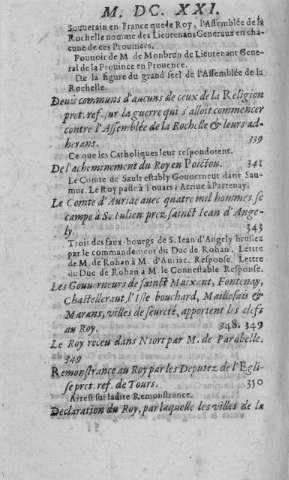 M. DC. XXI.
Souuerain en France que le Roy, l'Assemblée de la
Rochelle nomme des Lieutenans Generaux en cha-
cune de ces Prouinces.
Pouuoir de M. de Monbrun de Lieutenant Gene-
ral de la Prouince en Prouence.
De la figure du grand seel de l'Assemblée de la
Rochelle.
Deux communs d'aucuns de ceux de la Religion
pret. ref. sur la guerre qui s'alloit commencer
contre l'Assemblée de la Rochelle & leurs ad-
herans. 339
Ce que les Catholiques leur respondoient.
De l'acheminement du Roy en Poictou. 341
Le Comte de Sault estably Gouuerneur dans Sau-
mur. Le Roy passe à Touars: Arriue à Partenay.
Le Comte d'Auriac auec quatre mil hommes se
campe à S. Iulien prez sainct Iean d'Ange-
ly. 343
Trois des faux-bourgs de S. Iean d'Angely bruslez
par le commandement du Duc de Rohan. Lettre
de M. de Rohan à M. d'Auriac. Response. Lettre
du Duc de Rohan à M. le Connestable Response.
Les Gouuerneurs de sainct Maixant, Fontenay,
Chastelleraut l'Isle bouchard, Maillesais &
Marans, villes de seureté, apportent les clefs
au Roy. 348. 349
Le Roy receu dans Niort par M. de Parabelle.
349
Remonstrance au Roy par les Deputez de l'Egli-
se pret. ref. de Tours. 350
Arrest sur ladite Remonstrance.
Declaration du Roy, par laquelle les villes de la